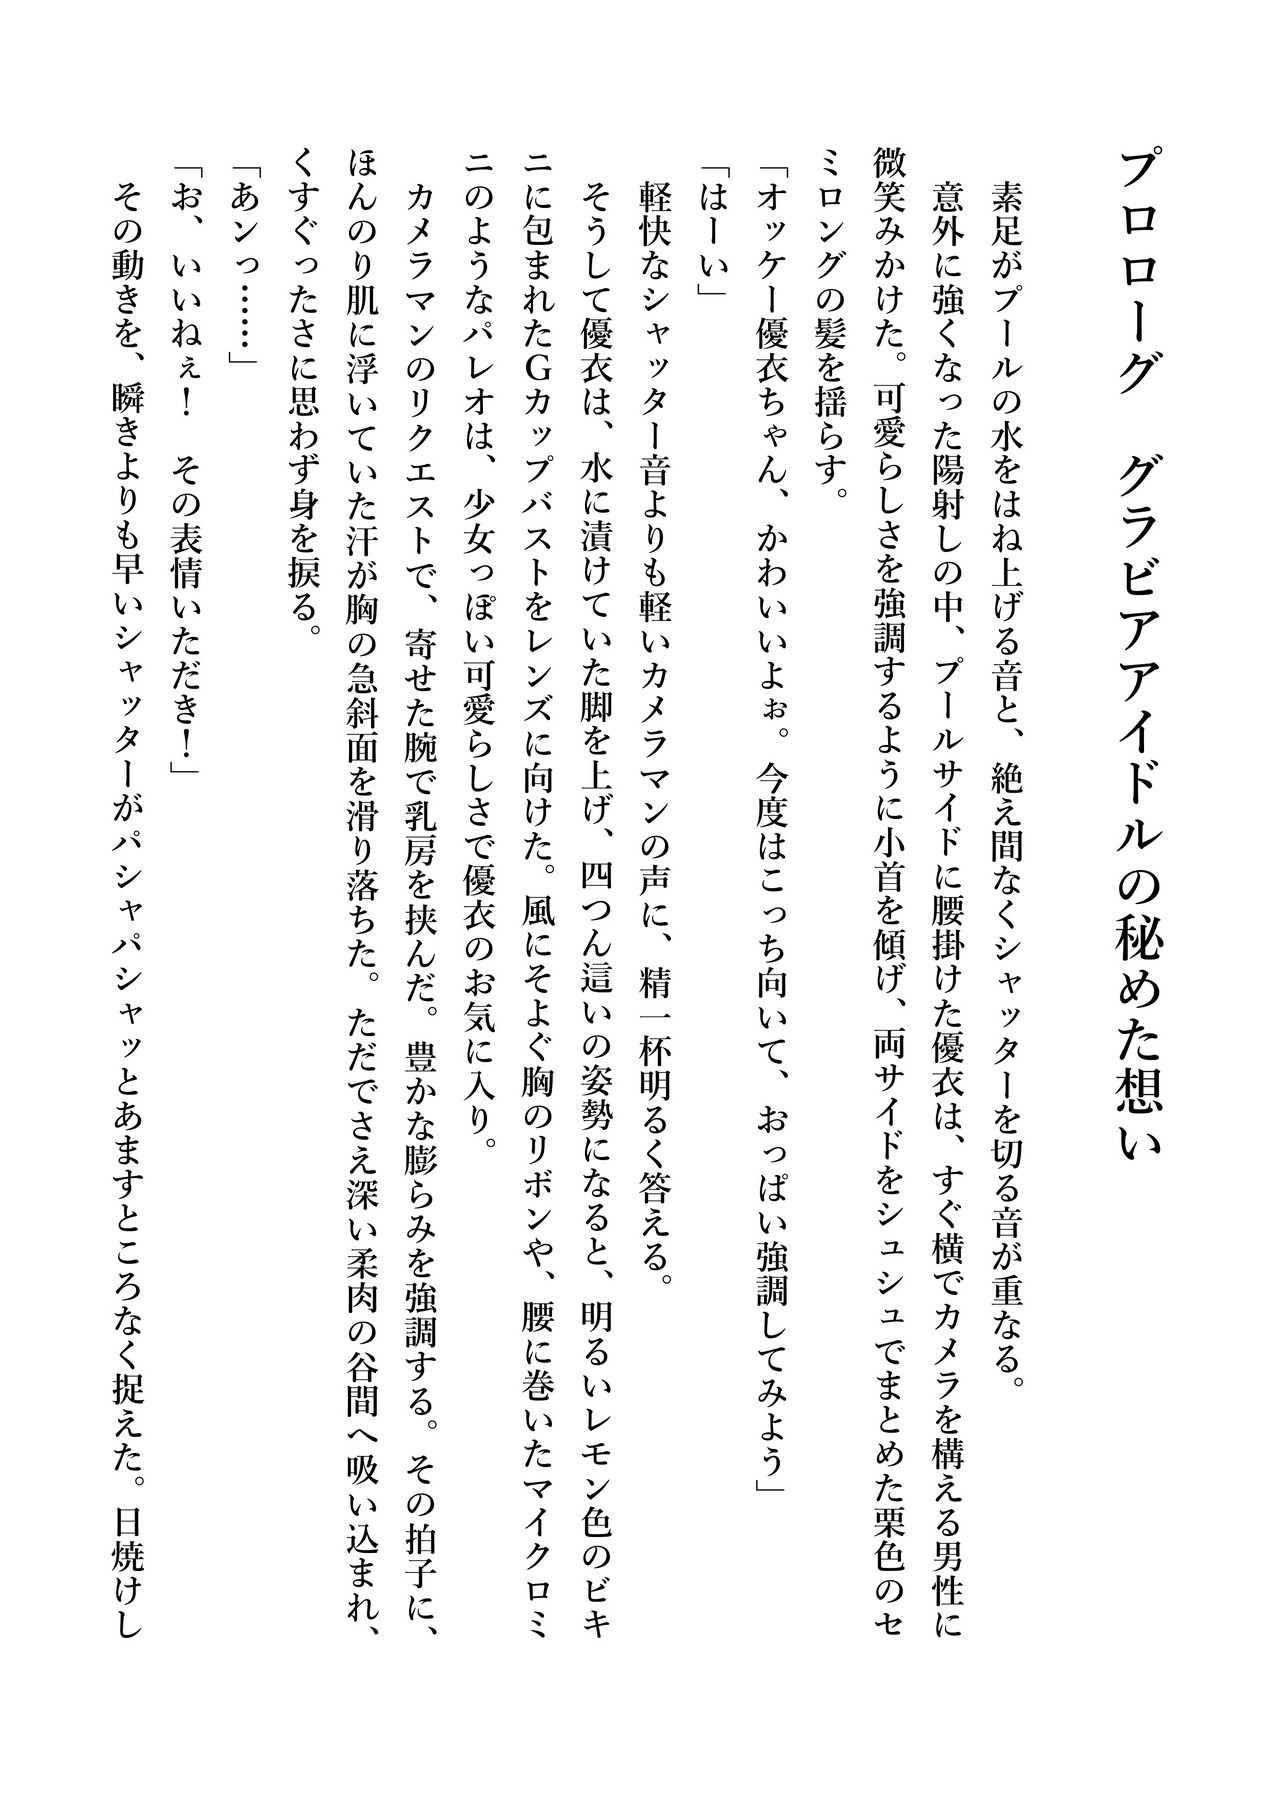 プロローグ　グラビアアイドルの秘めた想い
　素足がプールの水をはね上げる音と、絶え間なくシャッターを切る音が重なる。
　意外に強くなった陽射しの中、プールサイドに腰掛けた優衣は、すぐ横でカメラを構える男性に
微笑みかけた。可愛らしさを強調するように小首を傾げ、両サイドをシュシュでまとめた栗色のセ
ミロングの髪を揺らす。
「オッケー優衣ちゃん、かわいいよぉ。今度はこっち向いて、おっぱい強調してみよう」
「はーい」
　軽快なシャッター音よりも軽いカメラマンの声に、精一杯明るく答える。
　そうして優衣は、水に漬けていた脚を上げ、四つん這いの姿勢になると、明るいレモン色のビキ
ニに包まれたGカップバストをレンズに向けた。風にそよぐ胸のリボンや、腰に巻いたマイクロミ
ニのようなパレオは、少女っぽい可愛らしさで優衣のお気に入り。
　カメラマンのリクエストで、寄せた腕で乳房を挟んだ。豊かな膨らみを強調する。その拍子に、
ほんのり肌に浮いていた汗が胸の急斜面を滑り落ちた。ただでさえ深い柔肉の谷間へ吸い込まれ、
くすぐったさに思わず身を捩る。
「あンっ……」
「お、いいねぇ！　その表情いただき！」
　その動きを、瞬きよりも早いシャッターがパシャパシャッとあますところなく捉えた。日焼けし